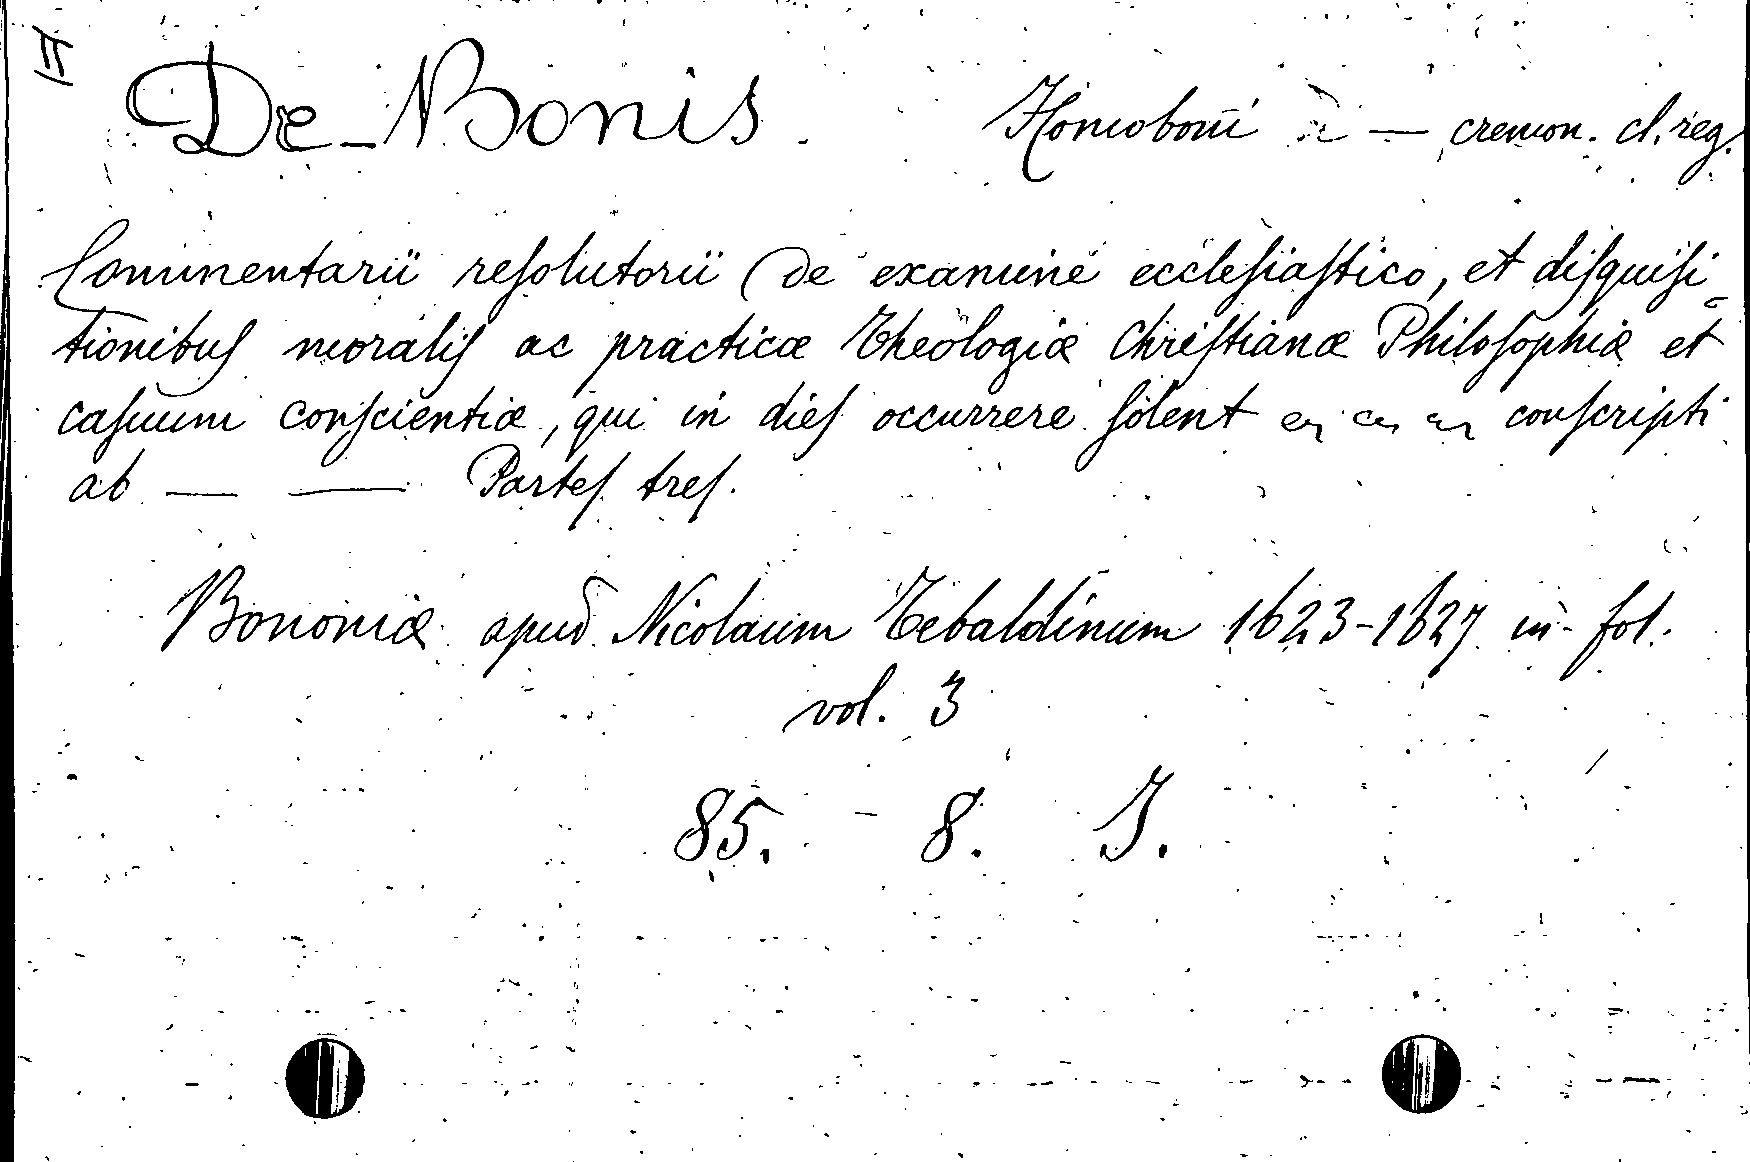 De-Bonis. Homoboni à — cremon. cl. reg.
Commentarii reſolutorii (de examine eccleſiaſtico, et diſquiſi-
tionibuſ moraliſ ac practicæ Theologiæ Chriſtianæ Philoſophiæ et
caſuum conſcientiæ, qui in dieſ occurrere ſolent conſcripti
ab — — Parteſ treſ.
Bononiæ apud Nicolaum Tebaldinum 1623-1627 in-fol.
vol. 3
85. - 8. I.